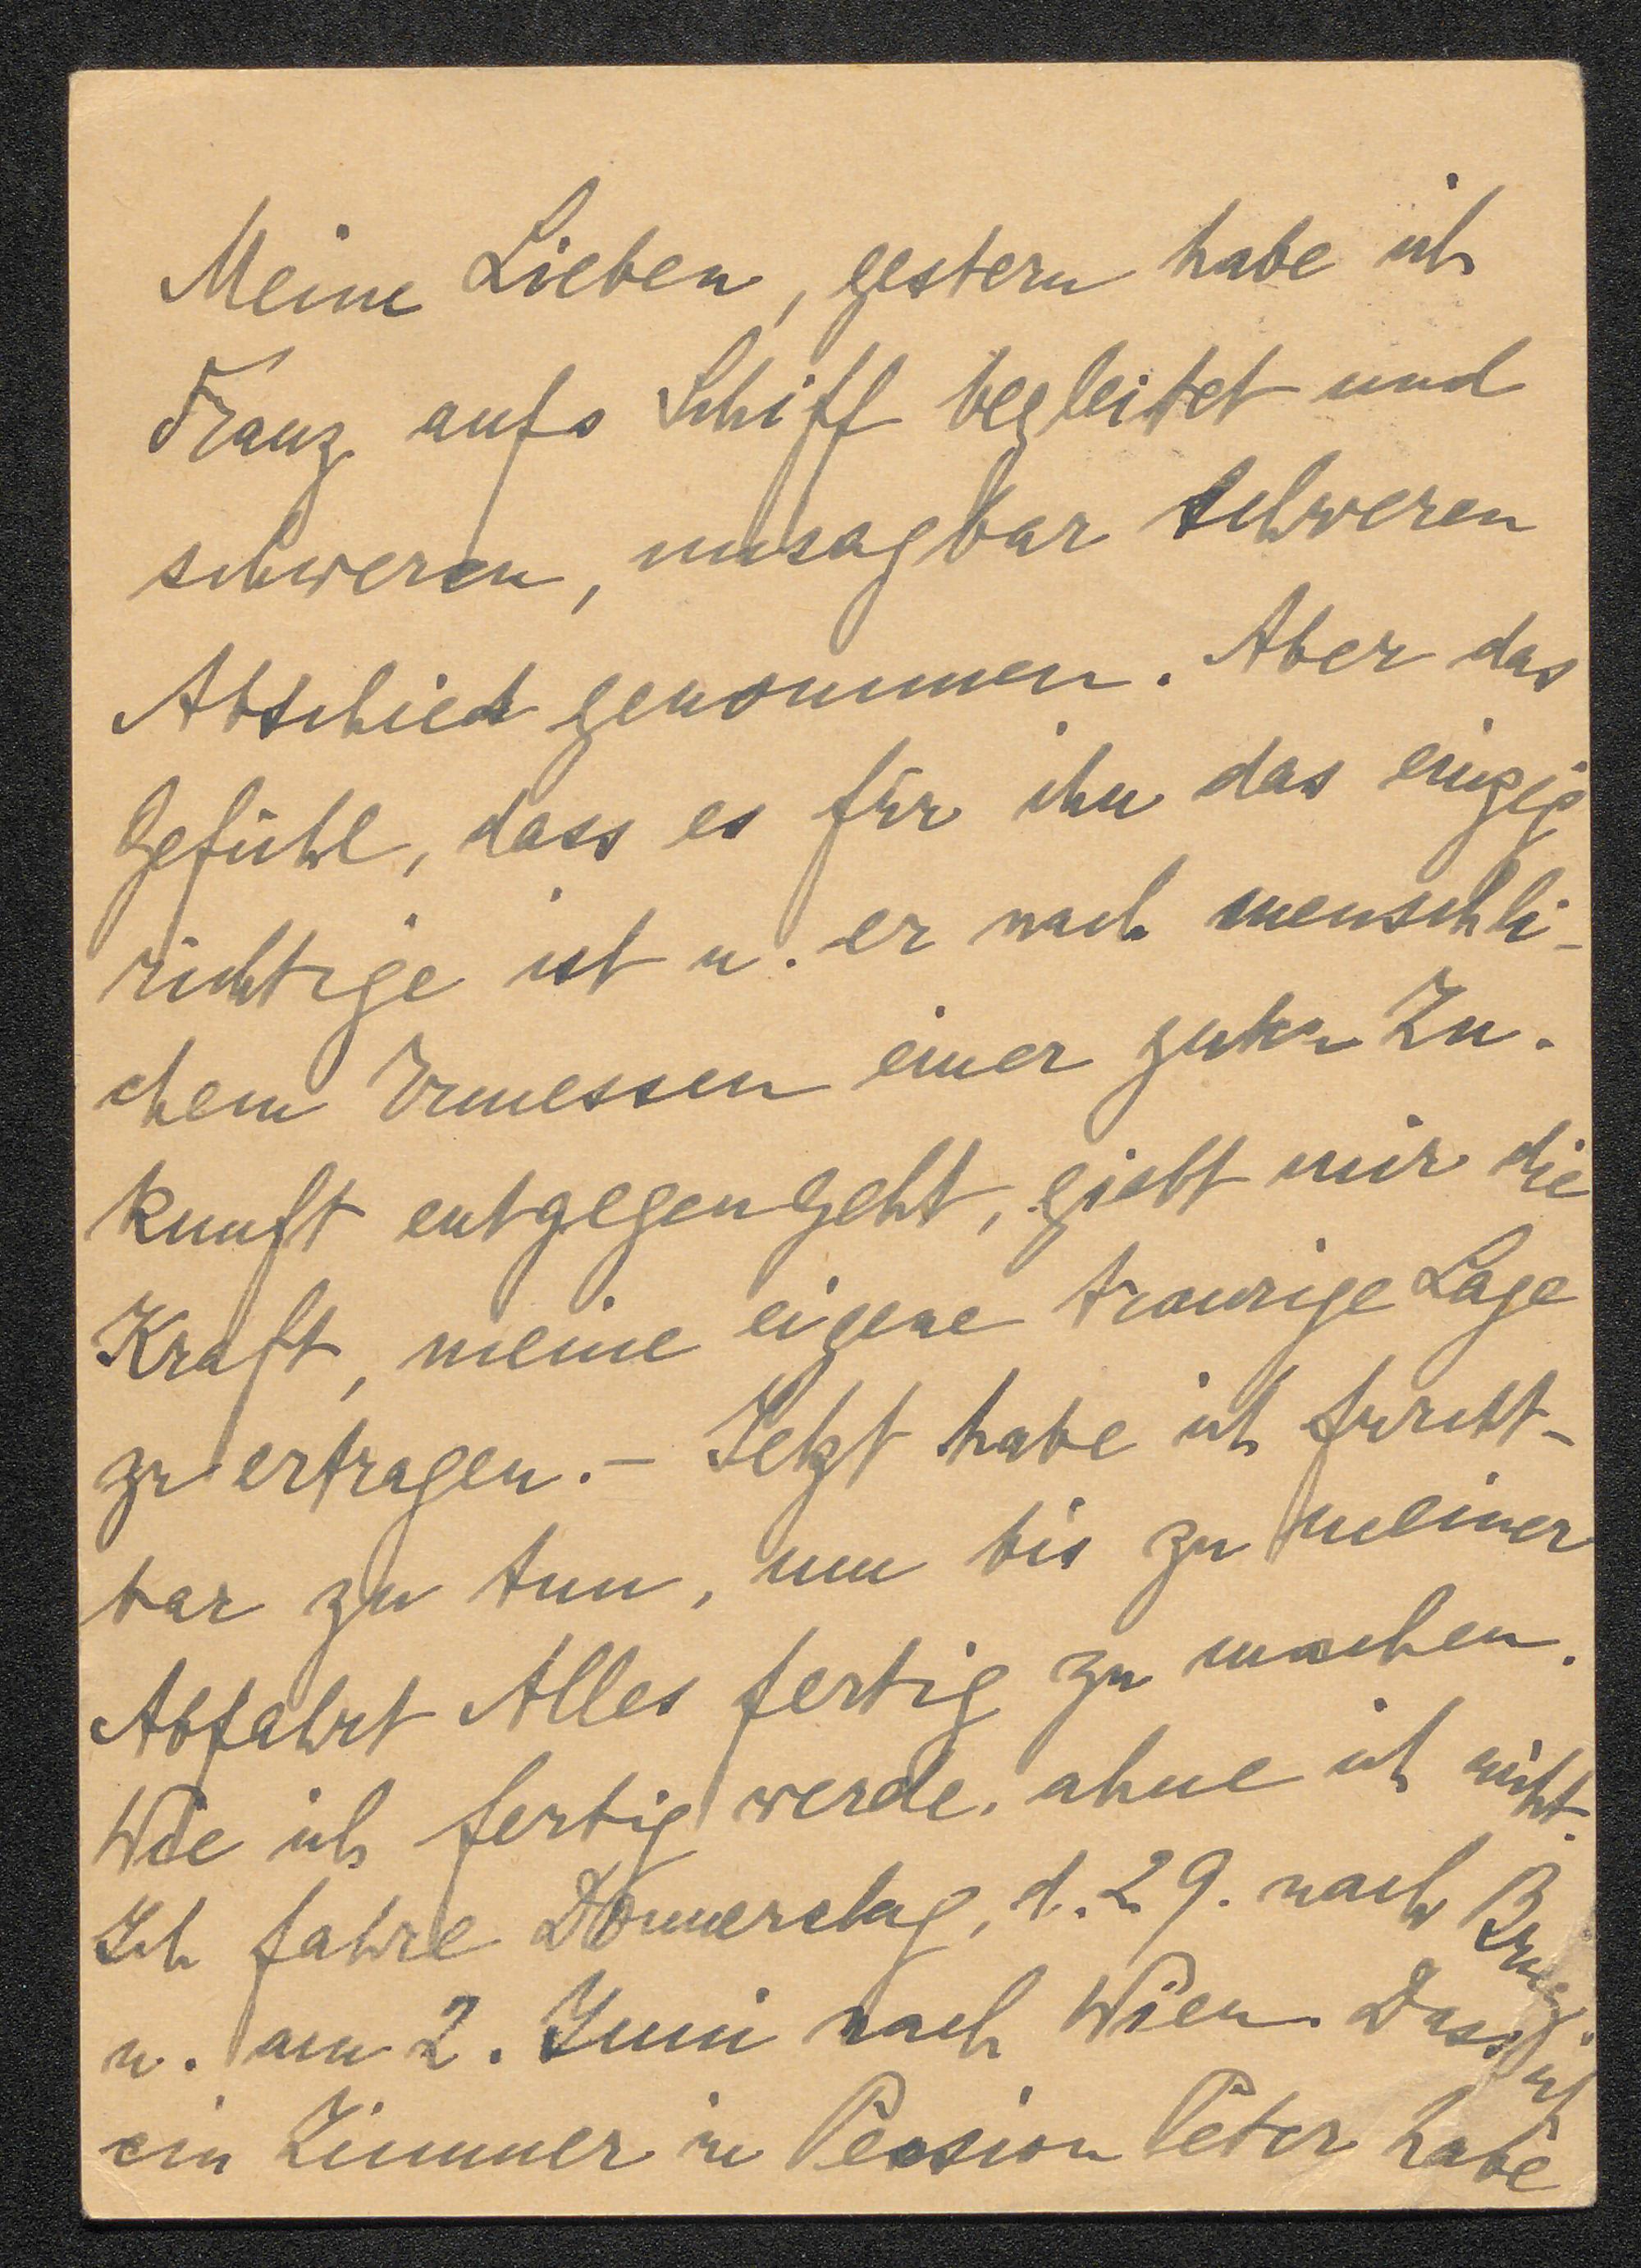 Meine Lieben, gestern habe ich
Franz aufs Schiff begleitet und
schweren, unsagbar schweren
Abschied genommen. Aber das
Gefühl, dass es für ihn das einzig
richtige ist u. er nach menschli-
chem Ermessen einer guten Zu-
kunft entgegengeht, giebt mir die
Kraft, meine eigene traurige Lage
zu ertragen. - Jetzt habe ich furcht-
bar zu tun, um bis zu meiner
Abfahrt Alles fertig zu machen.
Wie ich fertig werde, ahne ich nicht.
Ich fahre Donnerstag, d. 29. nach
u. am 2. Juni nach Wien. Dass ich
ein Zimmer in Pension Peter habe